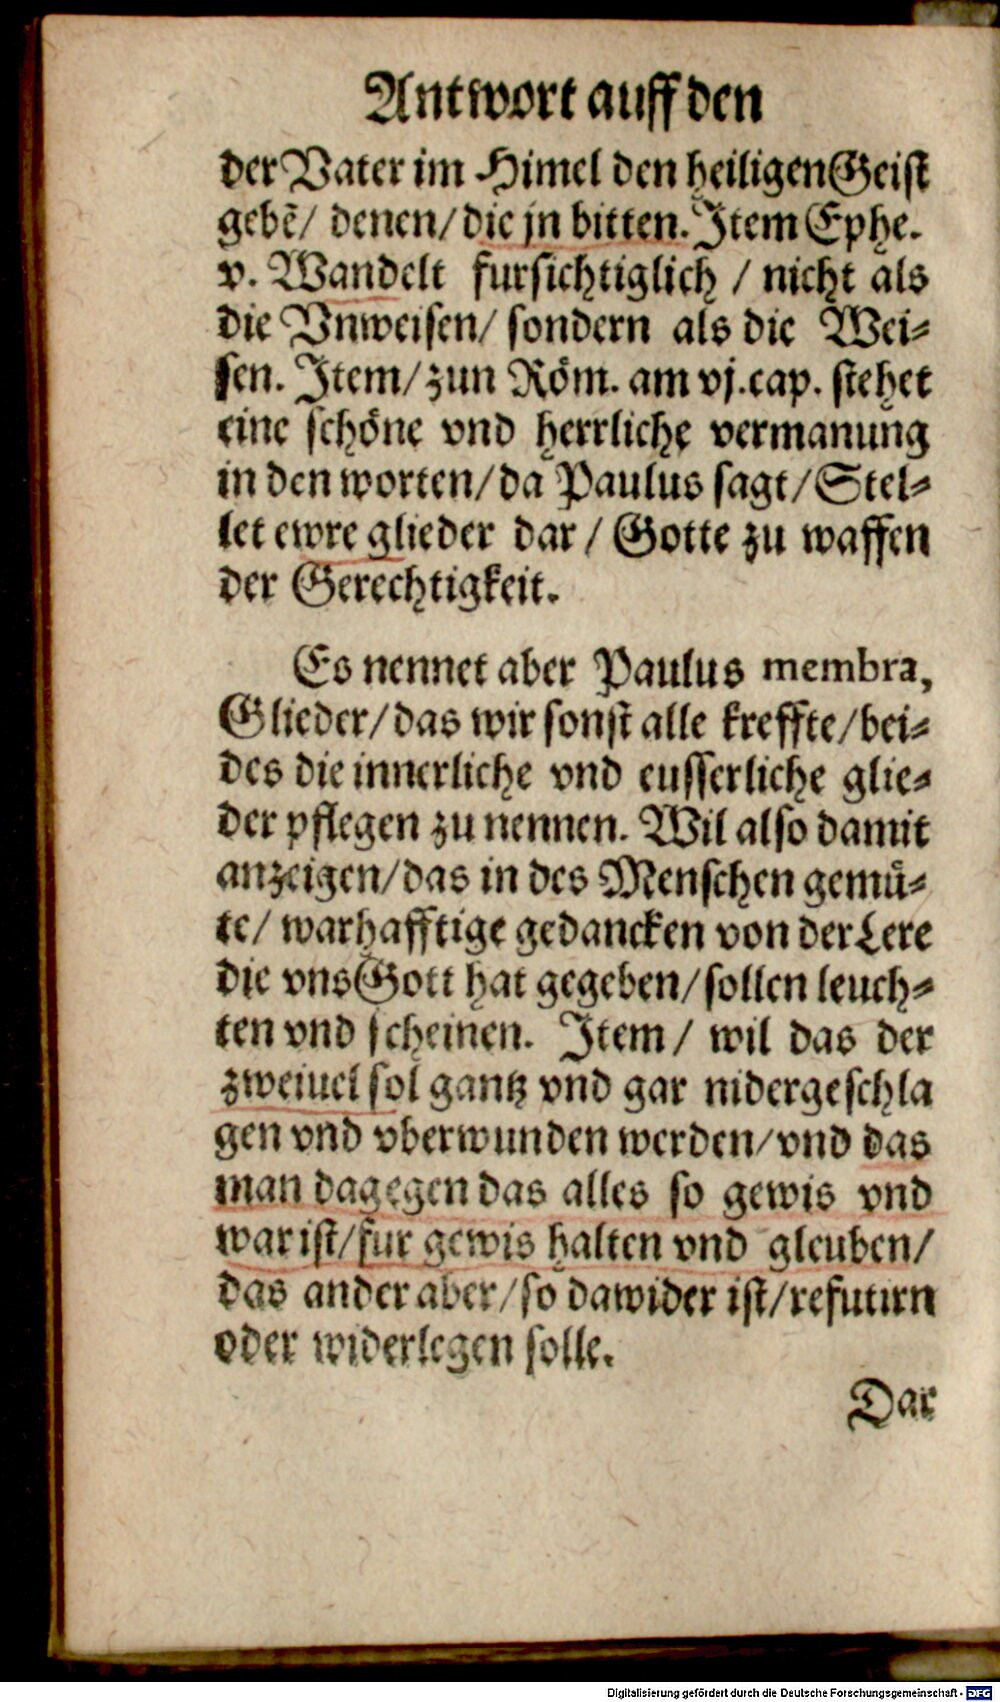 Antwort auff den
der Vater im Himel den heiligen Geist
gebē/ denen/ die jn bitten. Item Ephe.
v. Wandelt fursichtiglich / nicht als
die Vnweisen/ sondern als die Wei⸗
sen. Item/ zun Röm. am vj. cap. stehet
eine schöne vnd herrliche vermanung
in den worten/ da Paulus sagt/ Stel⸗
let ewre glieder dar / Gotte zu waffen
der Gerechtigkeit.
Es nennet aber Paulus membra,
Glieder/ das wir sonst alle kreffte/ bei⸗
des die innerliche vnd eusserliche glie⸗
der pflegen zu nennen. Wil also damit
anzeigen/ das in des Menschen gemü⸗
te/ warhafftige gedancken von der Lere
die vns Gott hat gegeben/ sollen leuch⸗
ten vnd scheinen. Item/ wil das der
zweiuel sol gantz vnd gar nidergeschla
gen vnd vberwunden werden/ vnd das
man dagegen das alles so gewis vnd
war ist/ fur gewis halten vnd gleuben/
das ander aber/ so dawider ist/ refutirn
oder widerlegen solle.
Dar
Digitalisierung gefördert durch die Deutsche Forschungsgemeinschaft - DFG